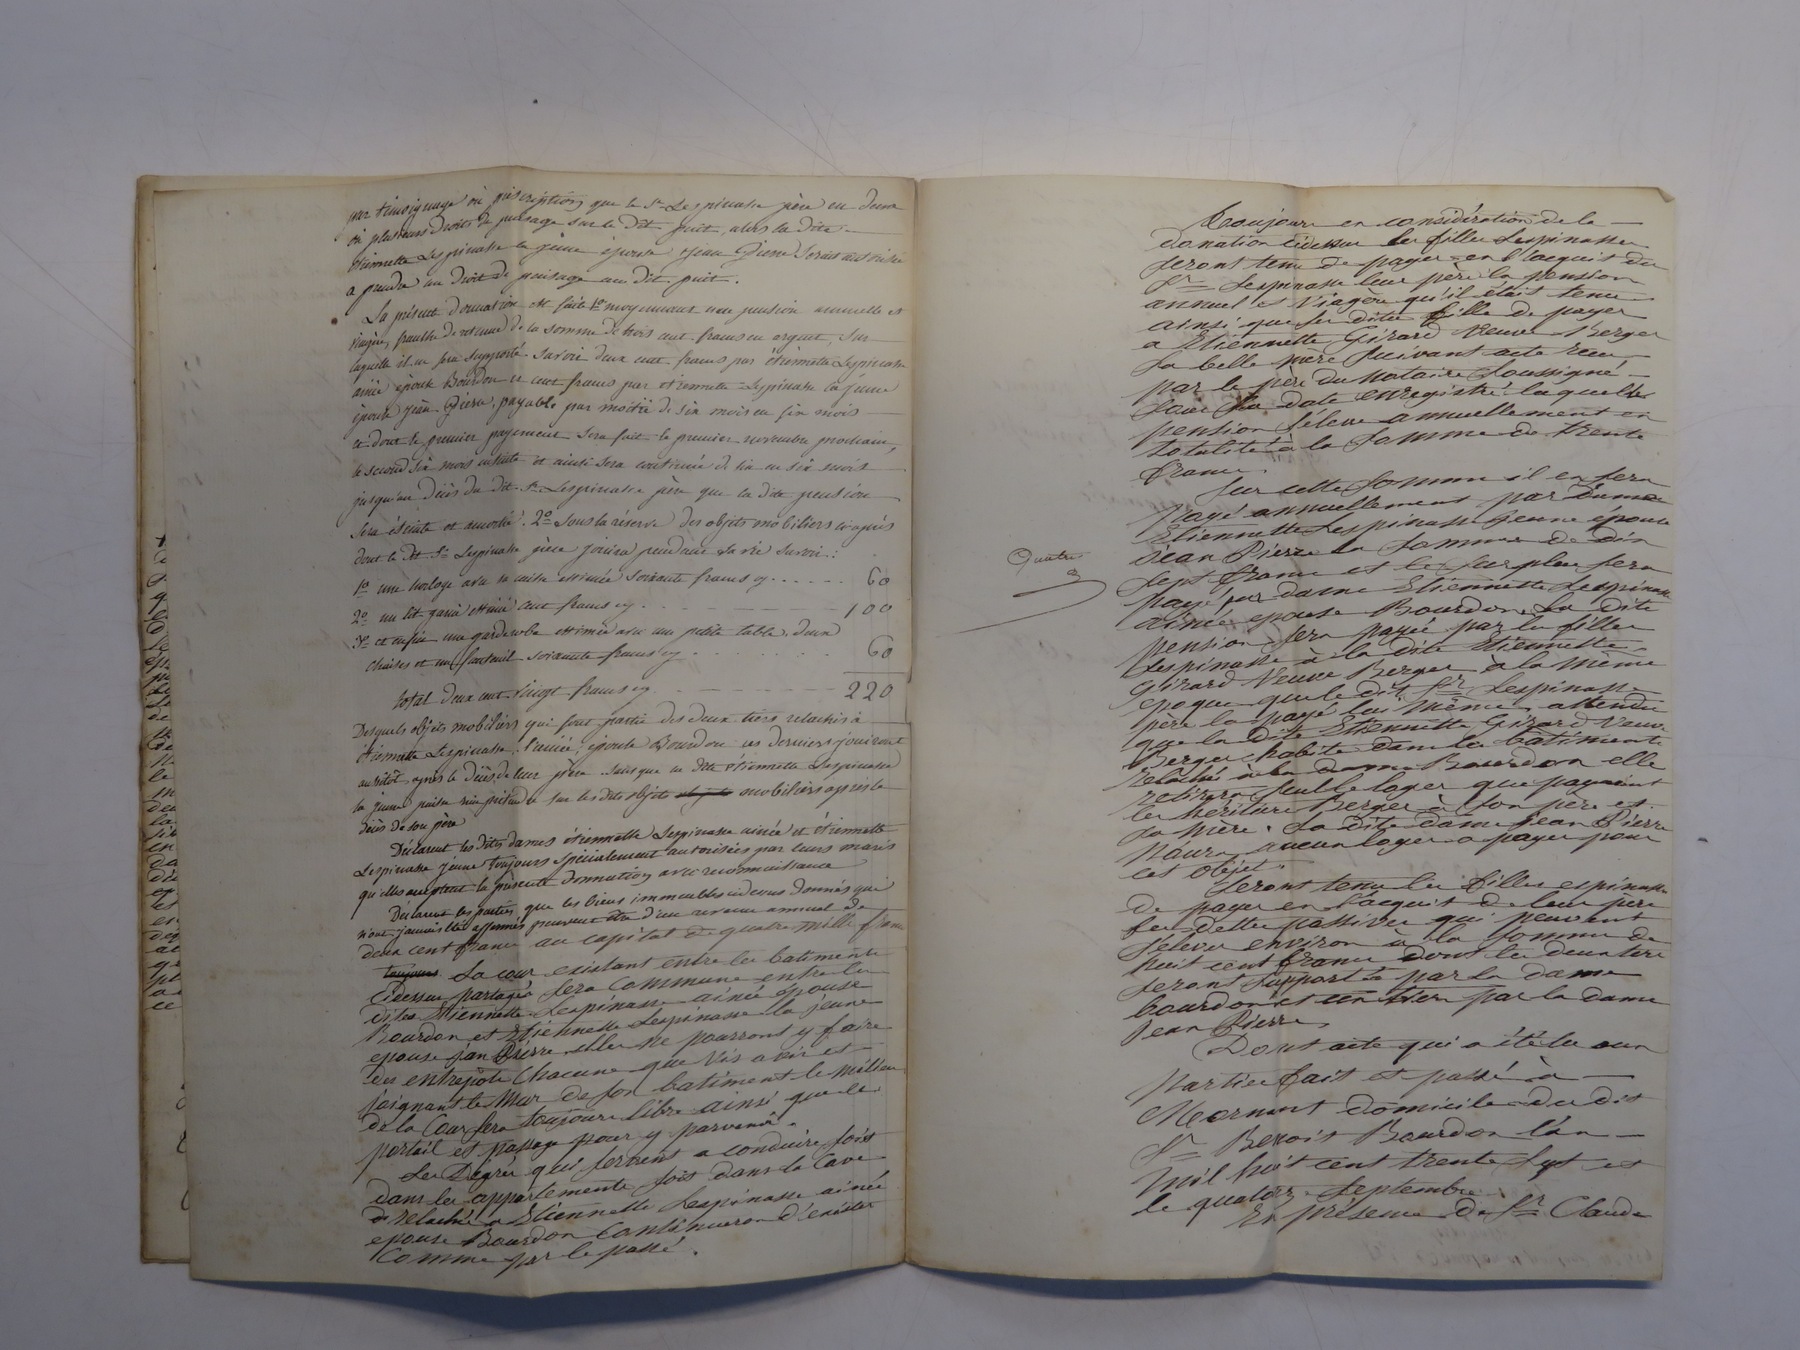 par témoignage où prescription, que le Sr Lespinasse père eu deux
où plusieurs droits de puisage sur le dit puit, alors la dite
Etiennette Lespinasse la jeune épouse Jean Pierre serait autorisée
a prendre un droit de puisage au dit puit.
La présente donnation est faite 1o moyennant une pension annuelle et
viagère, franche de retenue de la somme de trois cent francs en argent, sur
laquelle il en sera supporté savoir deux cent francs par étiennette Lespinasse
ainée épouse Bourdon et cent francs par étiennette Lespinasse la jeune
épouse jean Pierre, payable par moitié de six mois en six mois
et dont le premier payement sera fait le premier novembre prochain,
le second six mois ensuite et ainsi sera continué de six en six mois
jusqu'au décès du dit Sr Lespinasse père que la dite pension
sera éteinte et amortie. 2o sous la réserve des objets mobiliers ci après
dont le dit Sr Lespinasse père jouira pendant sa vie savoir :
1o une horloge avec sa caisse estimée soixante francs cy ..... 60
2o un lit garni estimé cent francs cy. 100
3o et enfin une garderobe estimée avec une petite table, deux
chaises et un fauteuil soixante francs cy 60
total deux cent vingt francs cy. 220
Desquels objets mobiliers qui font partie des deux tiers relachés à
étiennette Lespinasse l'ainée, épouse Bourdon ces derniers jouiront
aussitôt après le décès de leur père sans que la dite étiennette Lespinasse
la jeune puisse rien prétendre sur les dits objets mobiliers après le
décès de son père
Déclarent les dites dames étiennette Lespinasse ainée et étiennette
Lespinasse jeune toujours spécialement autorisées par leurs maris
qu'elles acceptent la présente donnation avec reconnaissance
Déclarent les parties que les biens immeubles ci dessus donnés qui
n'ont jamais été affermés peuvent être d'un revenu annuel de
deux cent francs au capital de quatre mille francs
toujours La cour existant entre les batiments
cidessus partagés sera commune entre les
dites Etiennette Lespinasse ainée épouse
Bourdon et Etiennette Lespinasse la jeune
epouse jean Pierre elles ne pourront y faire
des entrepots chacune que vis a vis et
joignant le mur de son batiment le milieu
de la Cour sera toujours libre ainsi que le
portail et passage pour y parvenir.
Les Degrés qui servent a conduire soit
dans les appartements soit dans la Cave
relachés a Etiennette Lespinasse ainée
epouse Bourdon continueron d'exister
Comme par le passé.
Quatre
Toujours en considération de la
donation cidessus les filles Lespinasse
seront tenu de payer en l'acquit du
Sr Lespinasse leur père la pension
annuel et Viagère qu'il était tenu
ainsi que ses dite fille de payer
a Etiennette Girard Veuve Berger
sa belle mère suivant acte reçu
par le père du Notaire Soussigné
sous sa date enregistré laquelle
pension s'éleve annuellement en
totalité à la somme de trente
francs
Sur cette somme il en sera
payé annuellement par Dame
Etiennette Lespinasse Jeune épouse
Jean Pierre la somme de dix
sept francs et le surplus sera
payé par dame Etiennette Lespinasse
ainée epouse Bourdon. La dite
pension sera payée par les filles
Lespinasse à la dite Etiennette
Girard Veuve Berger à la même
epoque que le dit Sr Lespinasse
père la payé lui même, attendu
que la dite Etiennette Girard Veuve
Berger habite dans les batiments
relaché à la dame Bourdon elle
retirera seulle loger que payaient
les héritiers Berger à son père et
sa mère. La dite dame Jean Pierre
naura aucun loger a payer pour
cet objet.
Seront tenu les filles espinasse
de payer en l'acquit de leur père
les dettes passives qui peuvent
selever environ à la somme de
huit cent francs dont les deux tiers
seront supporté par la dame
bourdon et un tiers par la dame
Jean Pierre
Dont acte qui a été lu aux
Parties fait et passé à
Mornant domicile du dit
Sr Benoit Bourdon l'an
mil huit cent trente sept et
le quatorze Septembre
En présence de Sr Claude